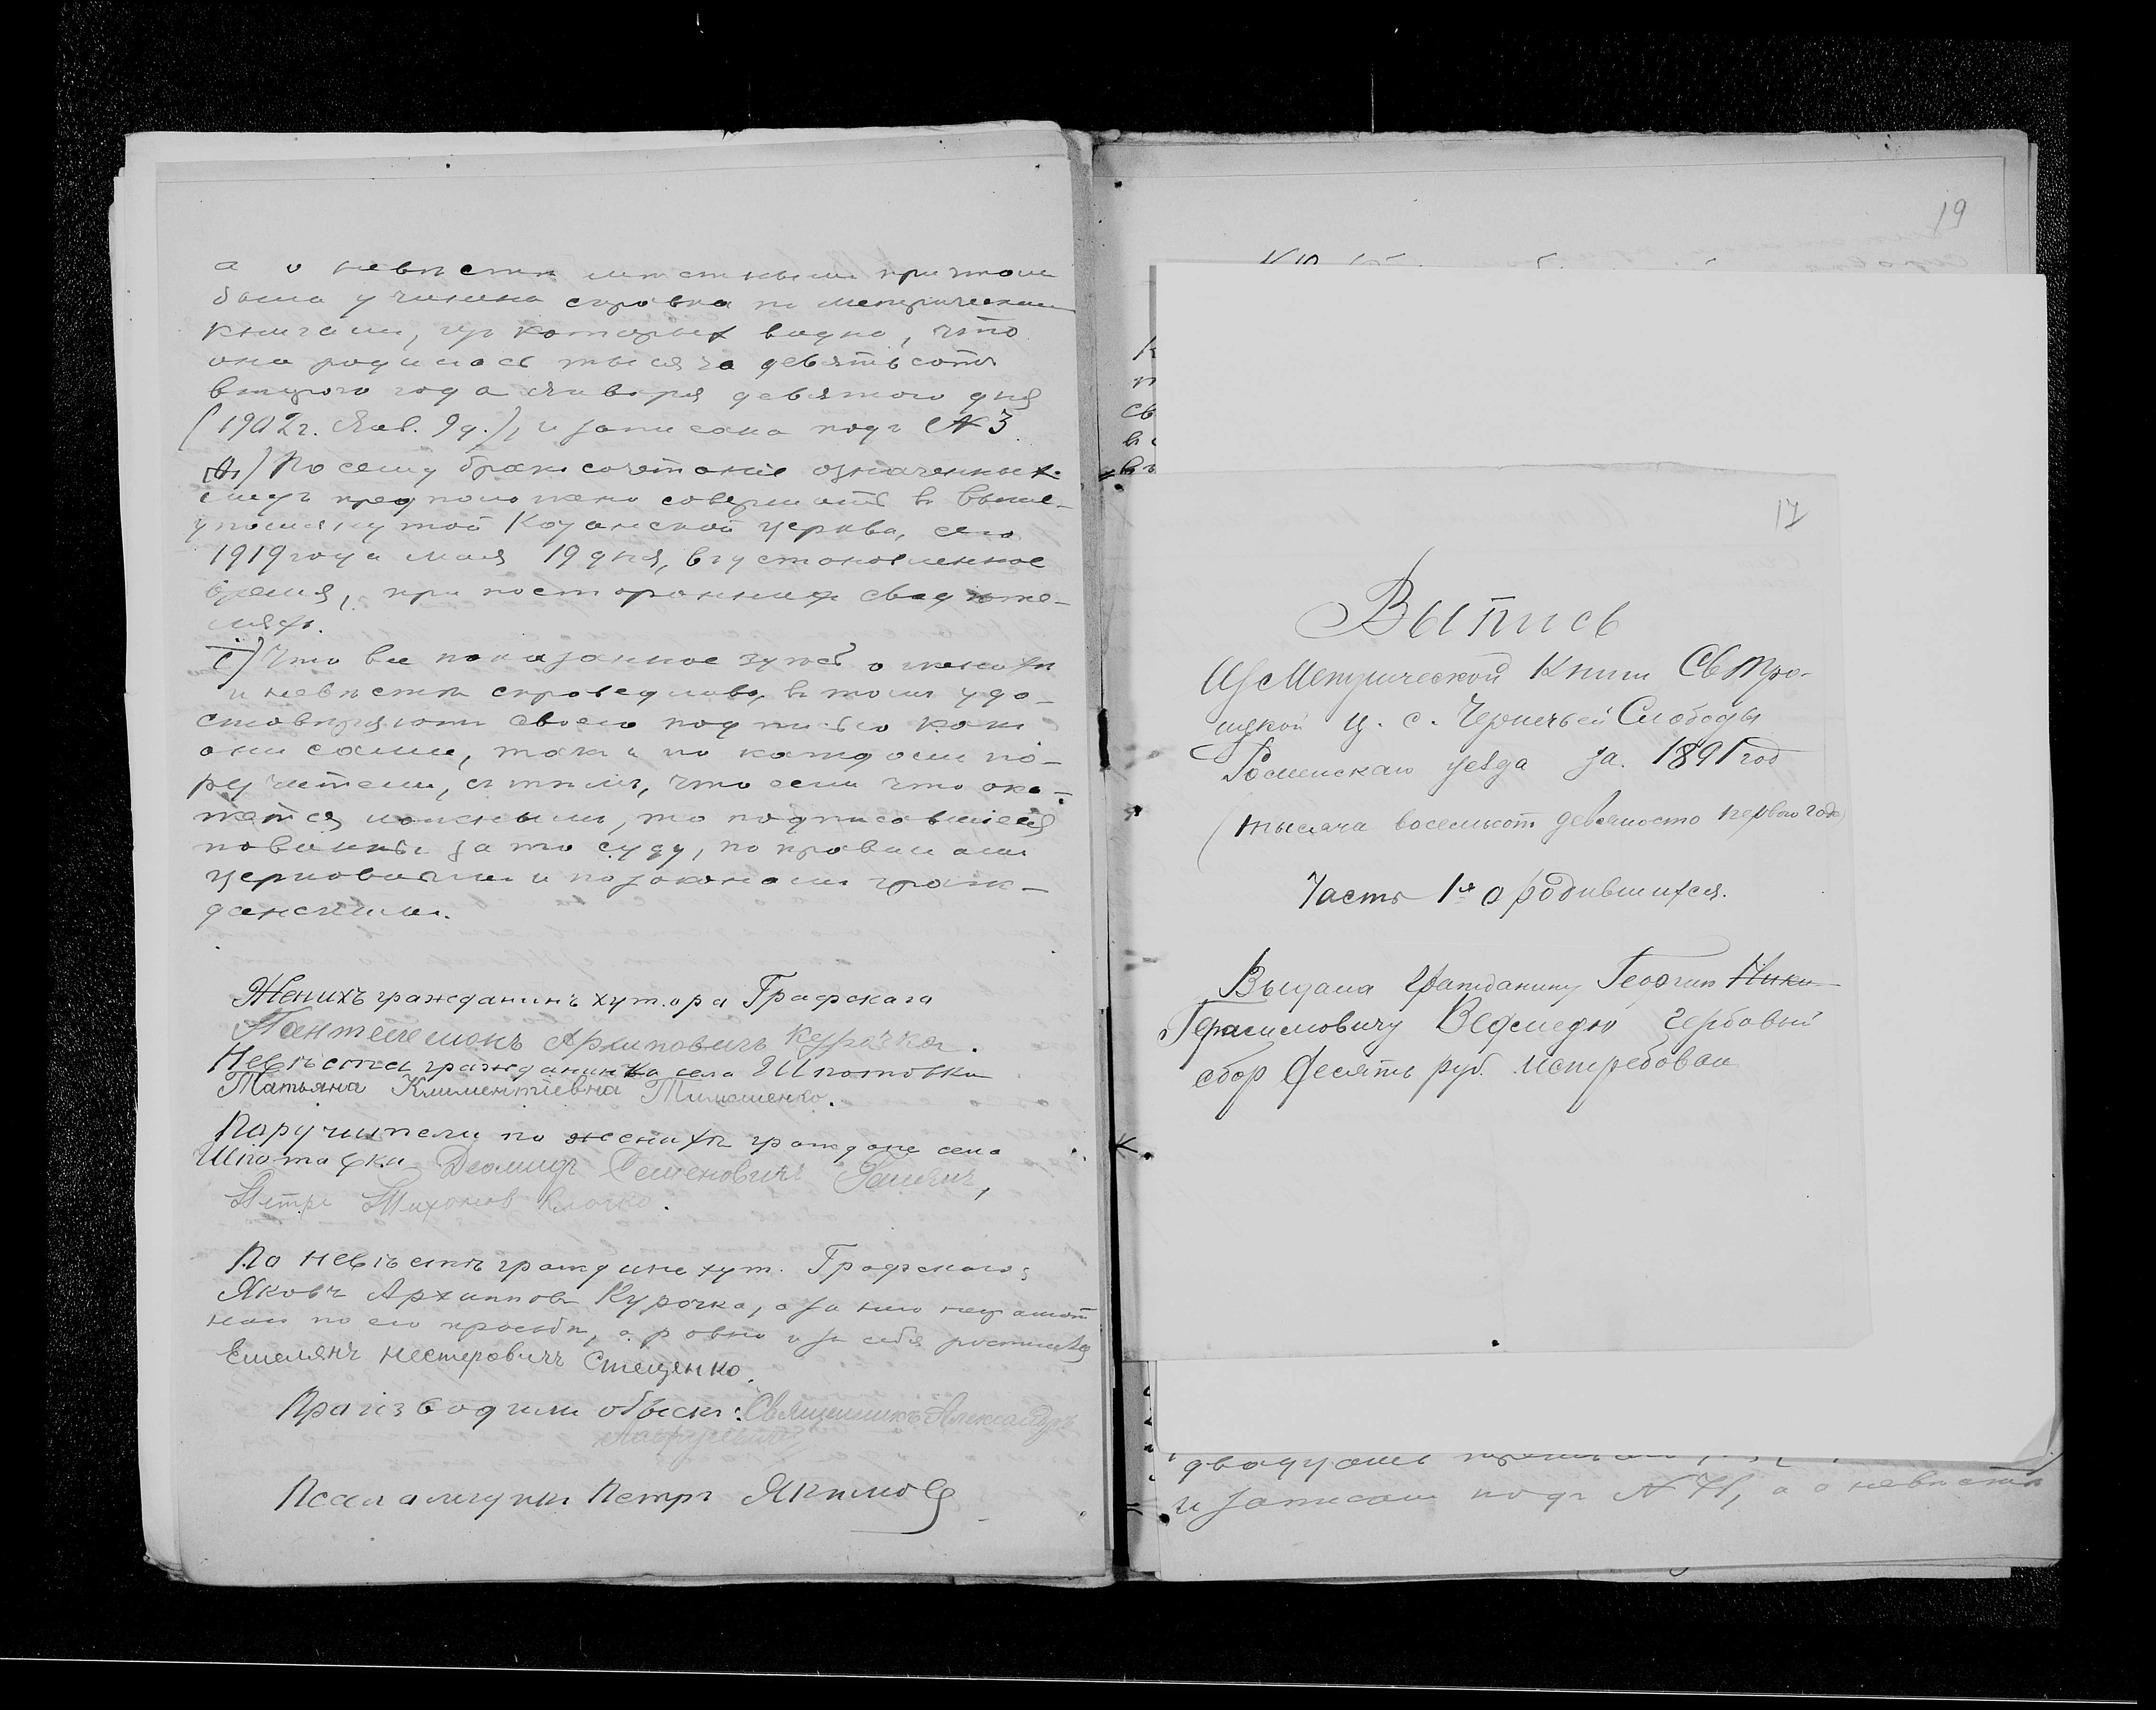 а о невѣстѣ мѣстнымъ причтомъ
была учинена справка по метрическимъ
книгамъ, изъ которыхъ видно, что
она родилась тысяча девятьсотъ
второго года января девятого дня
(1902 г. Янв. 9 д.), и записана подъ № 3.
Ѳ) По сему бракосочетаніе означенныхъ
лицъ предположено совершить въ выше-
упомянутой Казанской церкви, сего
1919 года мая 19 дня, въ установленное
время, при постороннихъ свидѣте-
ляхъ.
І) Что все показанное здѣсь о женихѣ
и невѣстѣ справедливо, въ томъ удо-
стовѣряютъ своею подписью какъ
они сами, такъ и по каждомъ по-
ручители, съ тѣмъ, что если что ока-
жется ложнымъ, то подписавшіеся
повинны за то суду, по правиламъ
церковнымъ и по законамъ граж-
данскимъ.
Женихъ гражданинъ хутора Графскаго
Пантелеимонъ Архиповичъ Курочка.
Невѣста гражданинка села Шпотовки
Татьяна Климентіевна Тимошенко.
Поручители по женихѣ граждане села
Шпотовки Діомидъ Семеновичъ
Петръ Тихонов Клочко.
По невѣстѣ граждане хут. Графскаго
Яковъ Архиппов Курочка, а за него неграмот
наго по его просьбѣ, а равно и за себя росписался
Емельянъ Нестеровичъ Стеценко.
Производили обыскъ: Священникъ Александръ
Псаломщикъ Петръ Якимовъ
19
17
Выпись
Изъ Метрической Книги Св Тро-
ицкой ц. с. Чернечьей Слободы
Роменскаго уезда за 1891 год
(тысяча восемьсот девяносто перваго года)
Часть 1я о родившихся.
Выдана Гражданину Георгию Ники-
Герасимовичу Ведмедю гербовый
сбор десять руб. истребован
и записанъ подъ № 71, а о невѣстѣ